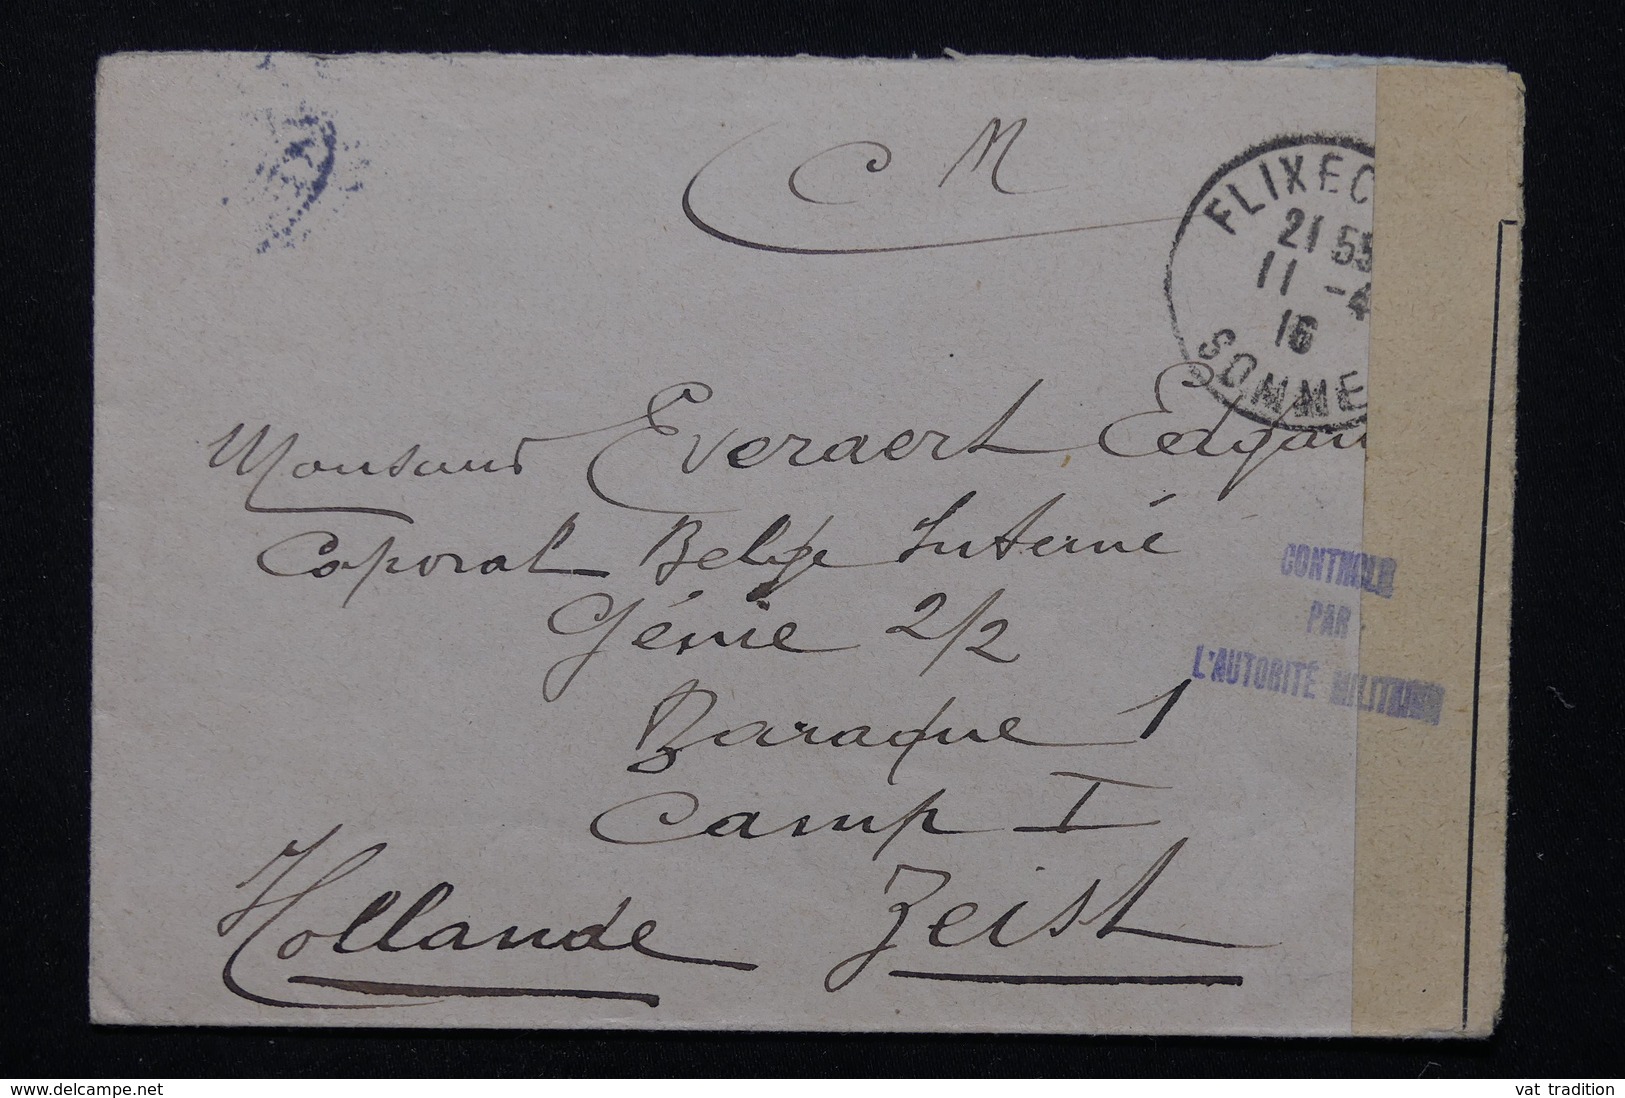 C M
FLIXEC
21 55
11 -4
16
SOMME
Monsieur Everaert Edgar
Caporal Belge Interné
Génie 2/2
Baraque 1
Camp I
Hollande Zeist
CONTROLE
PAR
L'AUTORITÉ MILITAIRE
delcampe.net
vat tradition